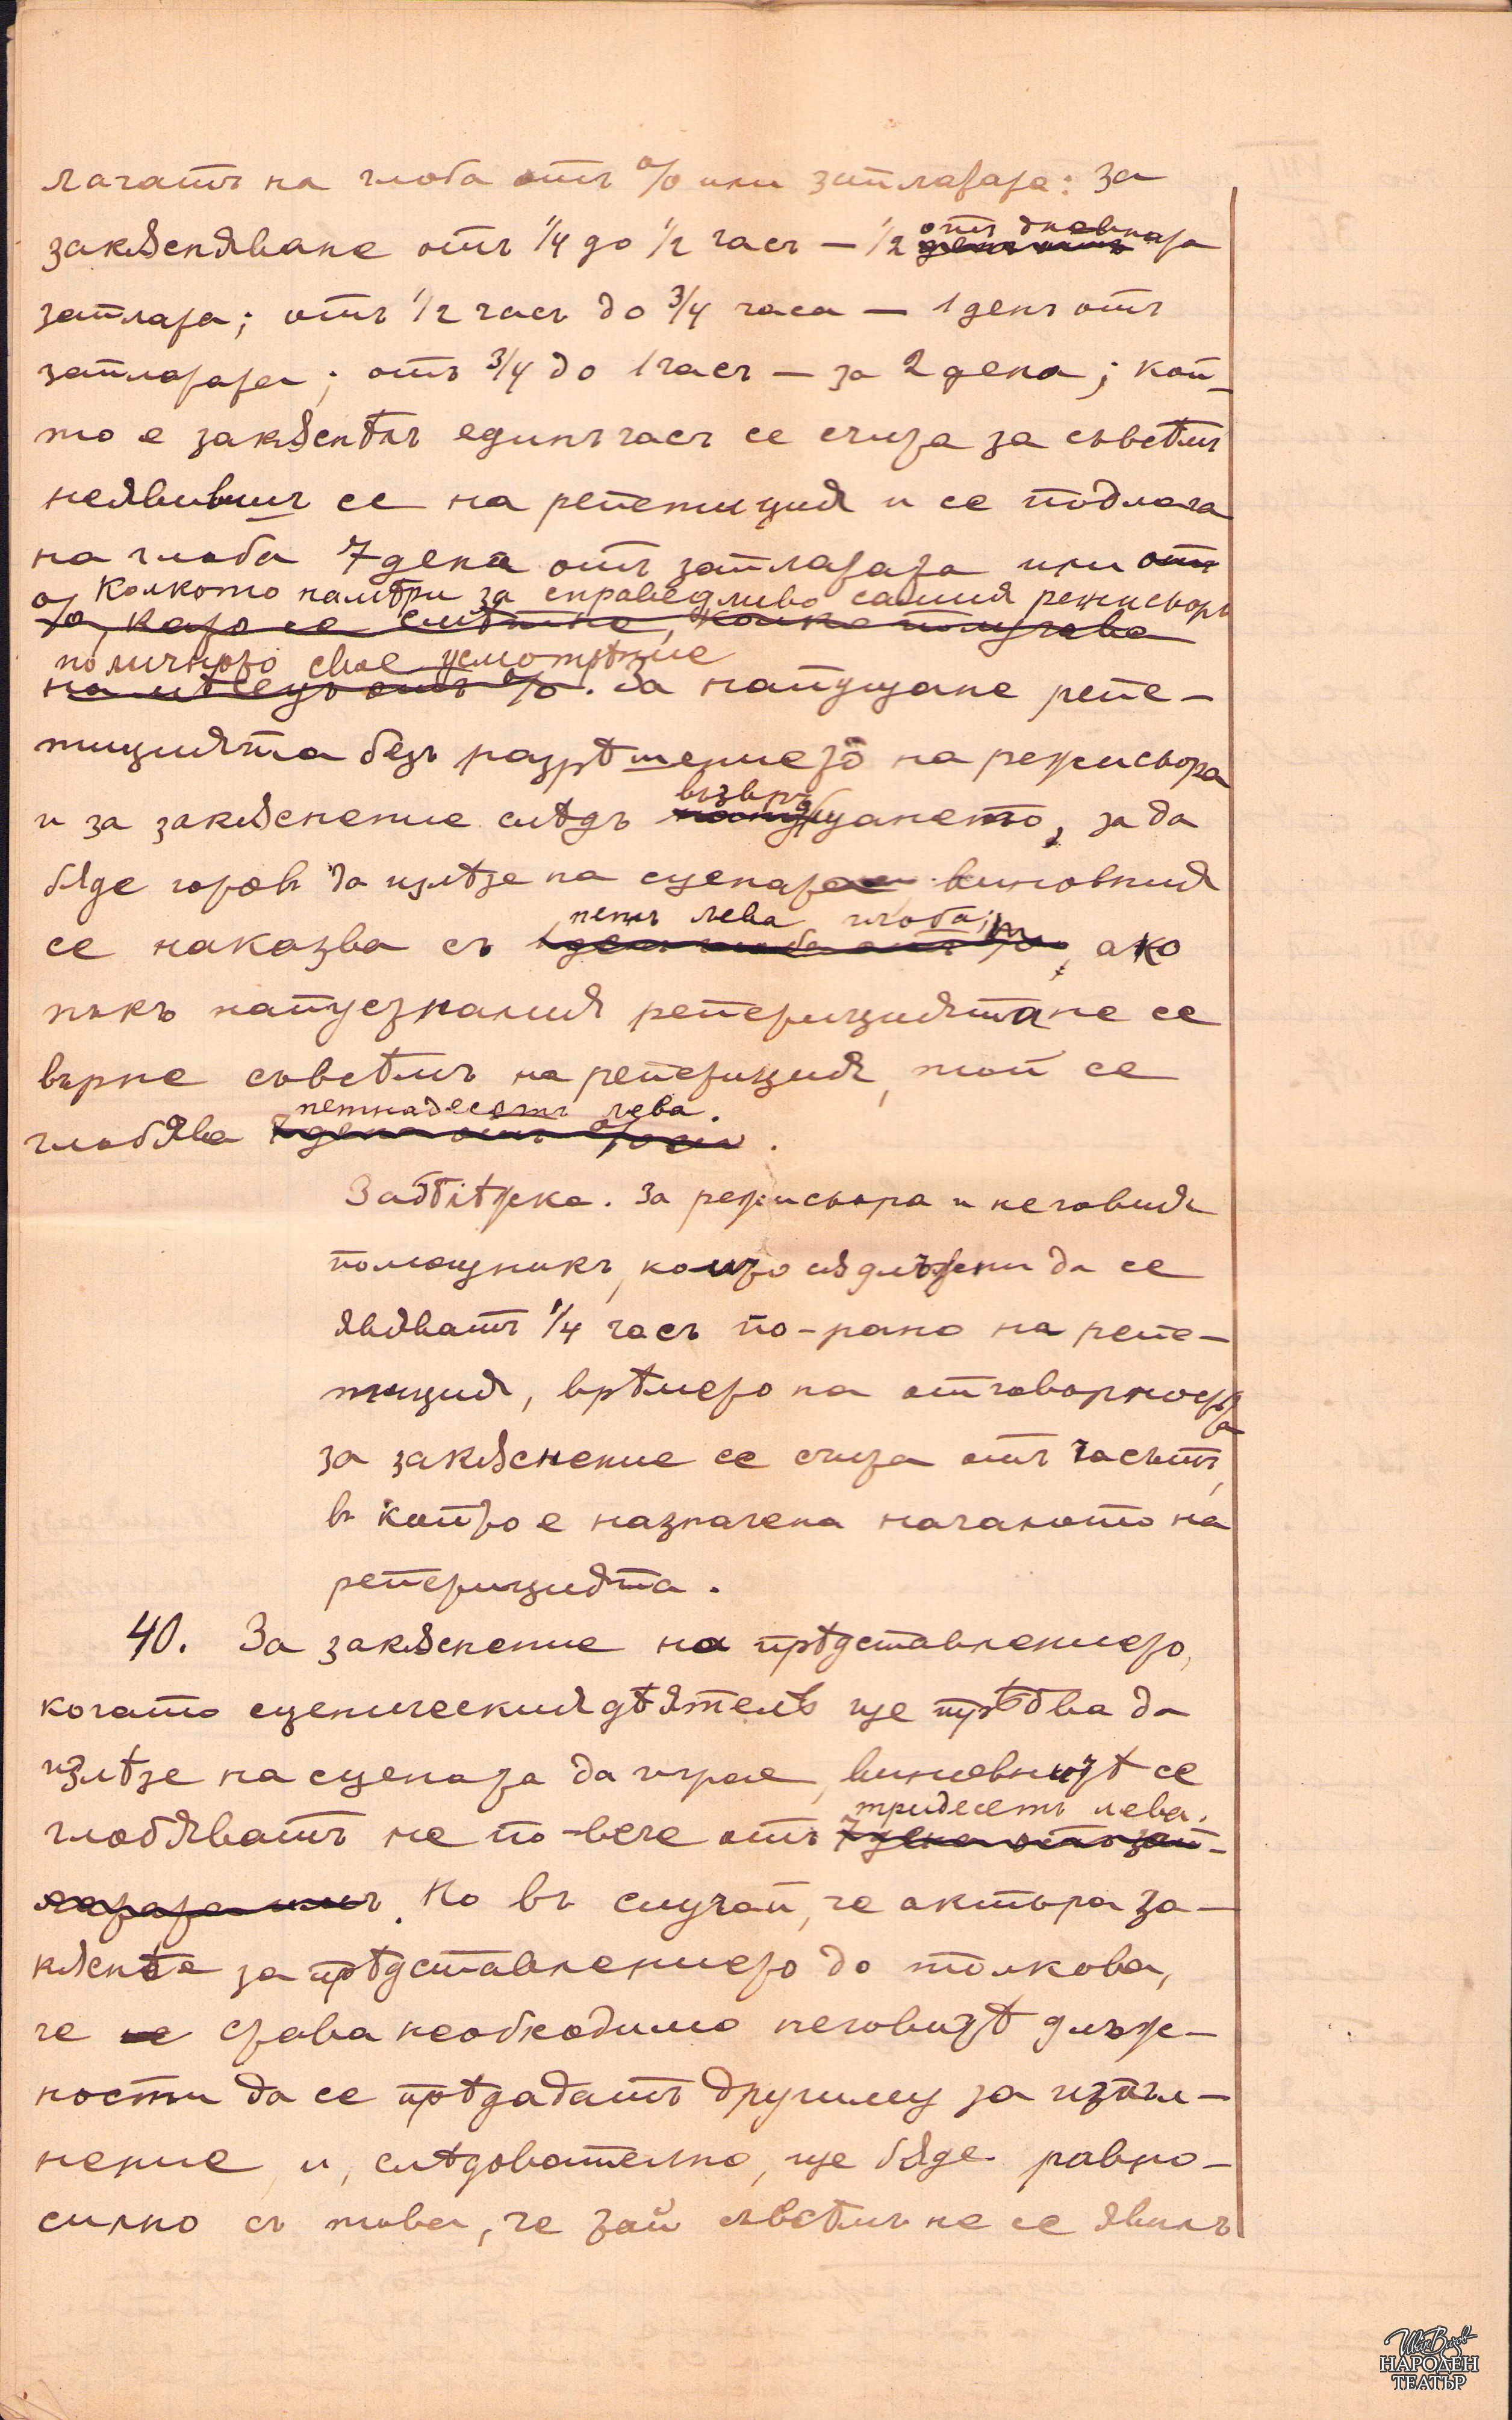 лагатъ на глоба отъ % или заплатата: за
закѫснѣване отъ 1/4 до 1/2 часъ — 1/2 отъ дневната
заплата; отъ 1/2 часъ до 3/4 часа — 1 денъ отъ
заплатата; отъ 3/4 до 1 часъ — за 2 дена; кой-
то е закѫснѣлъ единъ часъ се счита за съвсѣмъ
неявивши се на репетиция и се подлага
на глоба 7 дена отъ заплатата или отъ
колкото намѣри за справедливо самия режисьоръ
%, като се смѣтне, колко получава
по личното свое усмотрѣние
на мѣсецъ отъ %. За напущане репе-
тицията безъ разрѣшението на режисьора
и за закѫснение слѣдъ възвръщането, за да
бѫде готовъ да излѣзе на сцената виновния
петь лева глоба;
се наказва съ 1 денъ глоба отъ %, ако
пъкъ напусналия репетицията не се
върне съвсѣмъ на репетиция, той се
петнадесеть лева.
глобява 7 дена отъ %.
Забѣлѣжка. За режисьора и неговия
помощникъ, които сѫ длъжни да се
явяватъ 1/4 часъ по-рано на репе-
тиция, врѣмето на отговорността
за закѫснение се счита отъ часътъ,
въ който е назначена началото на
репетицията.
40. За закѫснение на прѣдставлението,
когато сценическия дѣятелъ ще трѣбва да
излѣзе на сцената да играе, виновнитѣ се
тридесеть лева.
глобяватъ не по-вече отъ 7 дена отъ зап-
латата имъ. Но въ случай, че актьора за-
кѫснѣе за прѣдставлението до толкова,
че не става необходимо неговитѣ длъж-
ности да се прѣдадатъ другиму за изпъл-
нение, и, слѣдователно, ще бѫде равно-
силно съ това, че той съвсѣмъ не се явилъ
Иван Вазов
НАРОДЕН
ТЕАТЪР